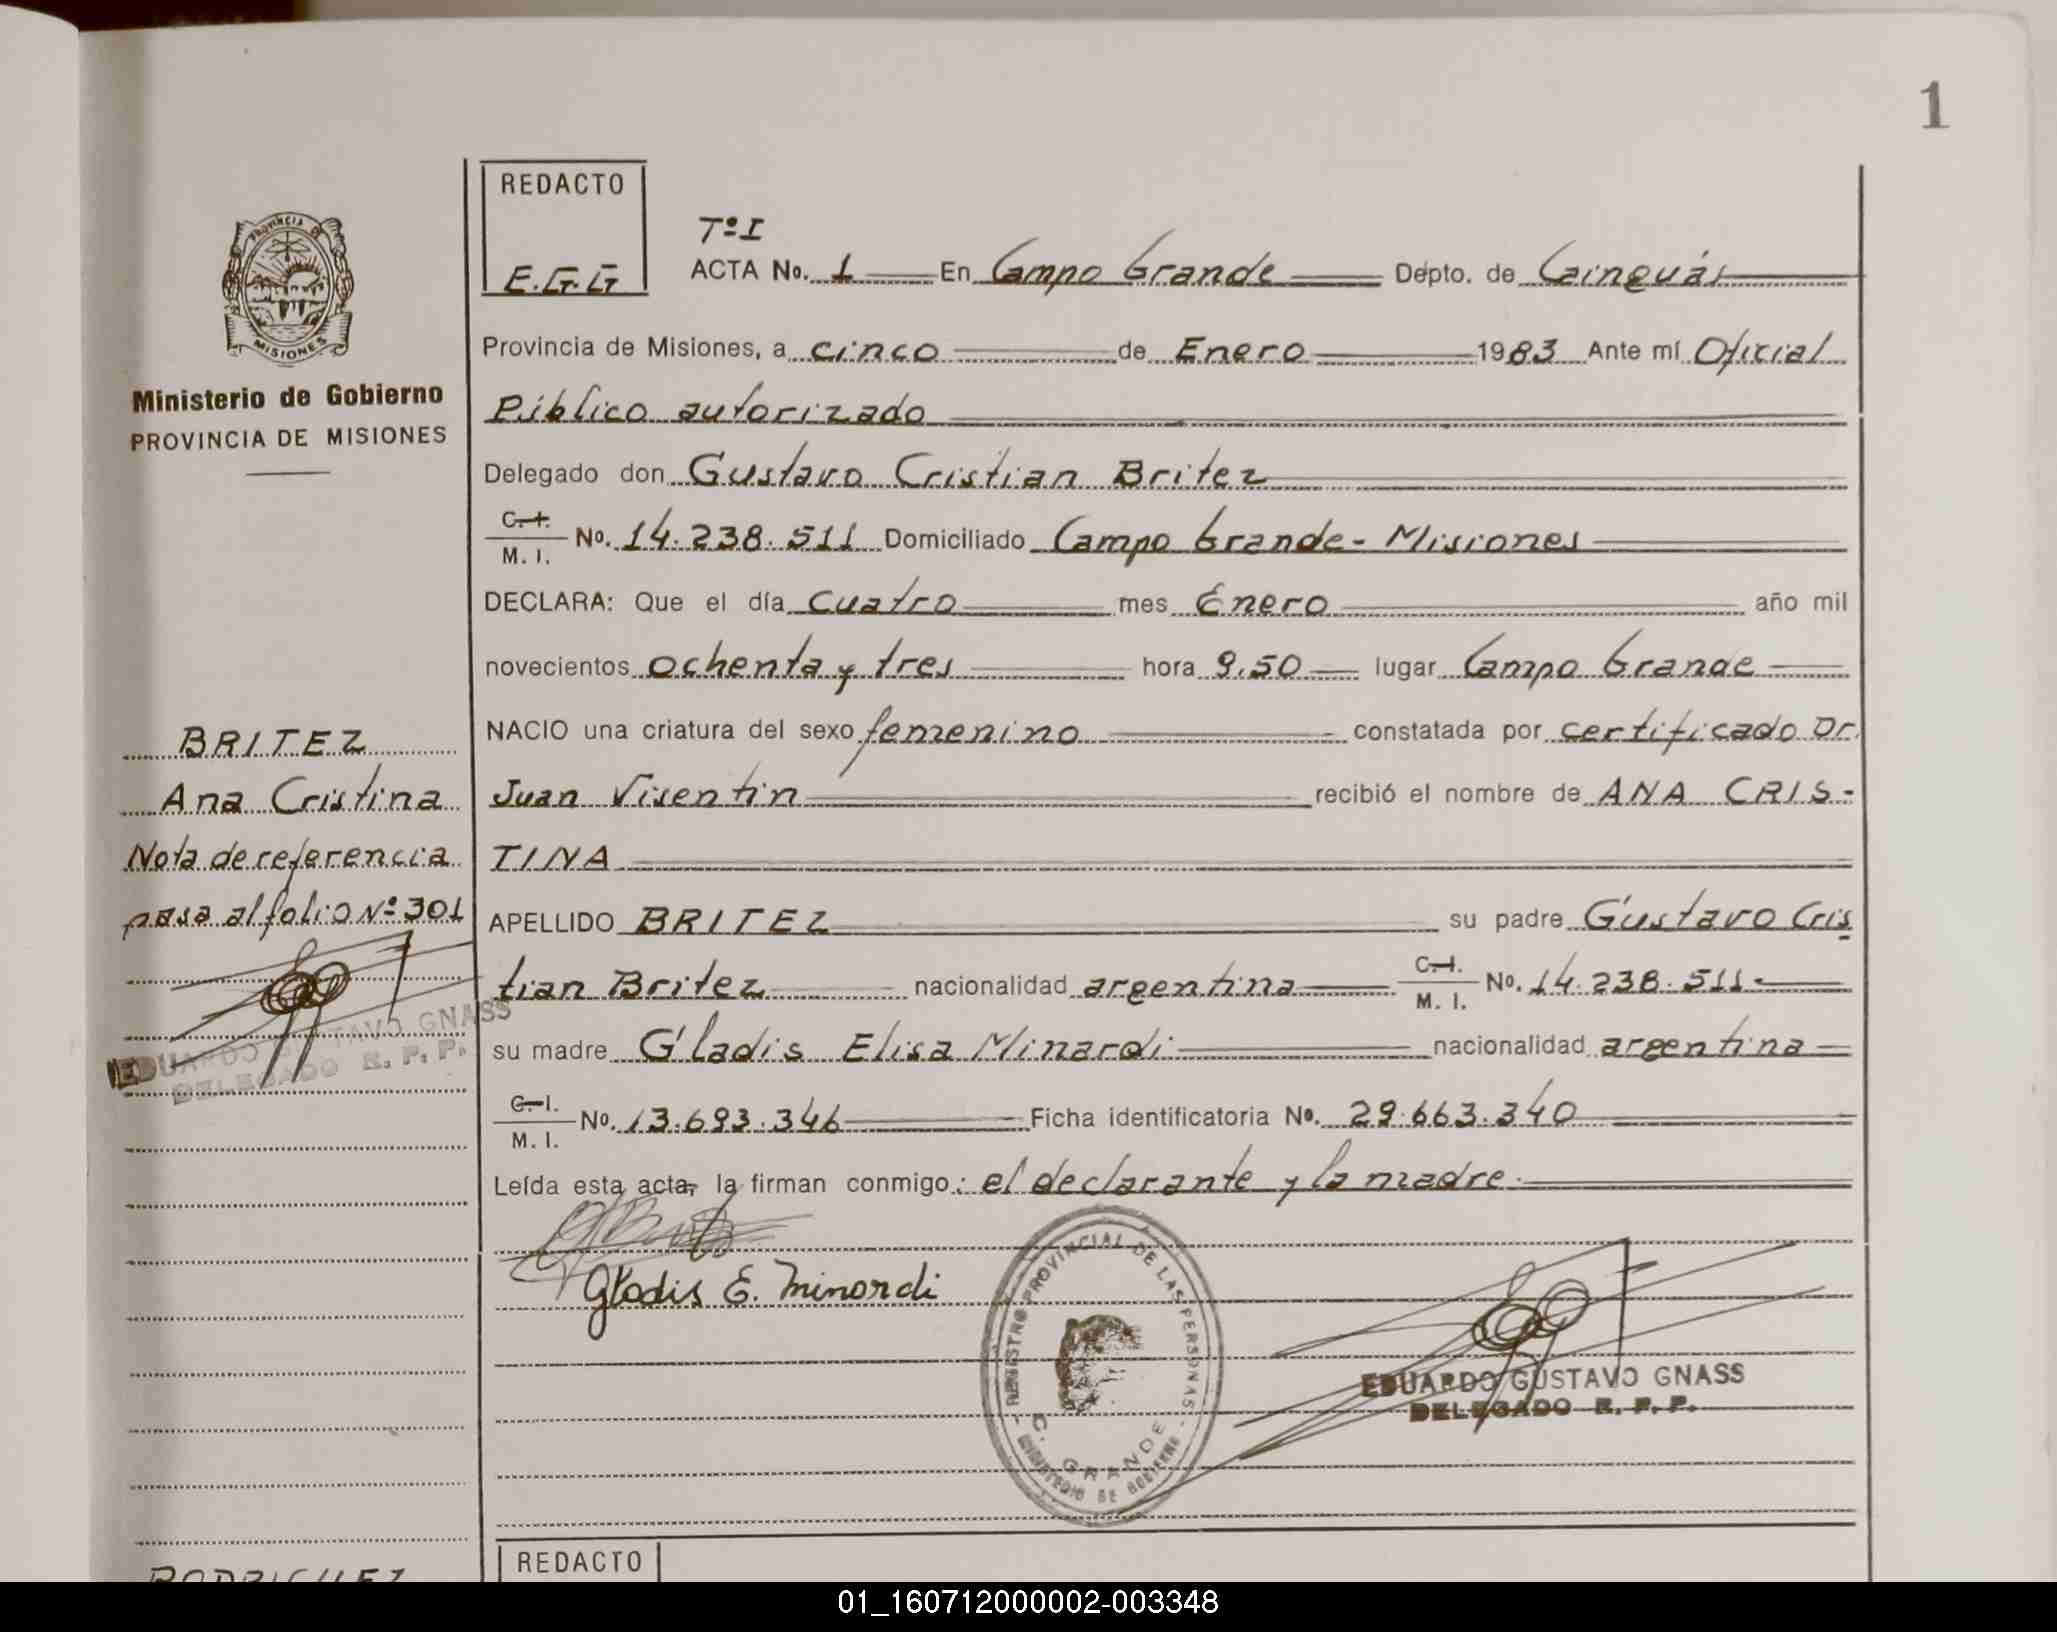 1
PROVINCIA DE
MISIONES
Ministerio de Gobierno
PROVINCIA DE MISIONES
REDACTO
E.G.G
Tº I
ACTA No. 1 En Campo Grande Depto. de Cainguás
Provincia de Misiones, a cinco de Enero 1983 Ante mí Oficial
Público autorizado
Delegado don Gustavo Cristian Britez
C. I.
M. I. No. 14.238.511 Domiciliado Campo Grande - Misiones
DECLARA: Que el día cuatro mes Enero año mil
novecientos ochenta y tres hora 9.50 lugar Campo Grande
NACIO una criatura del sexo femenino constatada por certificado Dr.
Juan Visentin recibió el nombre de ANA CRIS-
TINA
APELLIDO BRITEZ su padre Gustavo Cris
tian Britez nacionalidad argentina C. I. M. I. No. 14.238.511.-
su madre Gladis Elisa Minardi nacionalidad argentina
C. I.
M. I. No. 13.693.346 Ficha identificatoria No. 29.663.340
Leída esta acta, la firman conmigo: el declarante y la madre.
Gladis E. Minardi
REGISTRO PROVINCIAL DE LAS PERSONAS
C. GRANDE
MINISTERIO DE GOBIERNO
EDUARDO GUSTAVO GNASS
DELEGADO R. P. P.
BRITEZ
Ana Cristina
Nota de referencia
pasa al folio Nº 301
EDUARDO GUSTAVO GNASS
DELEGADO R. P. P.
RODRIGUEZ
REDACTO
01_160712000002-003348